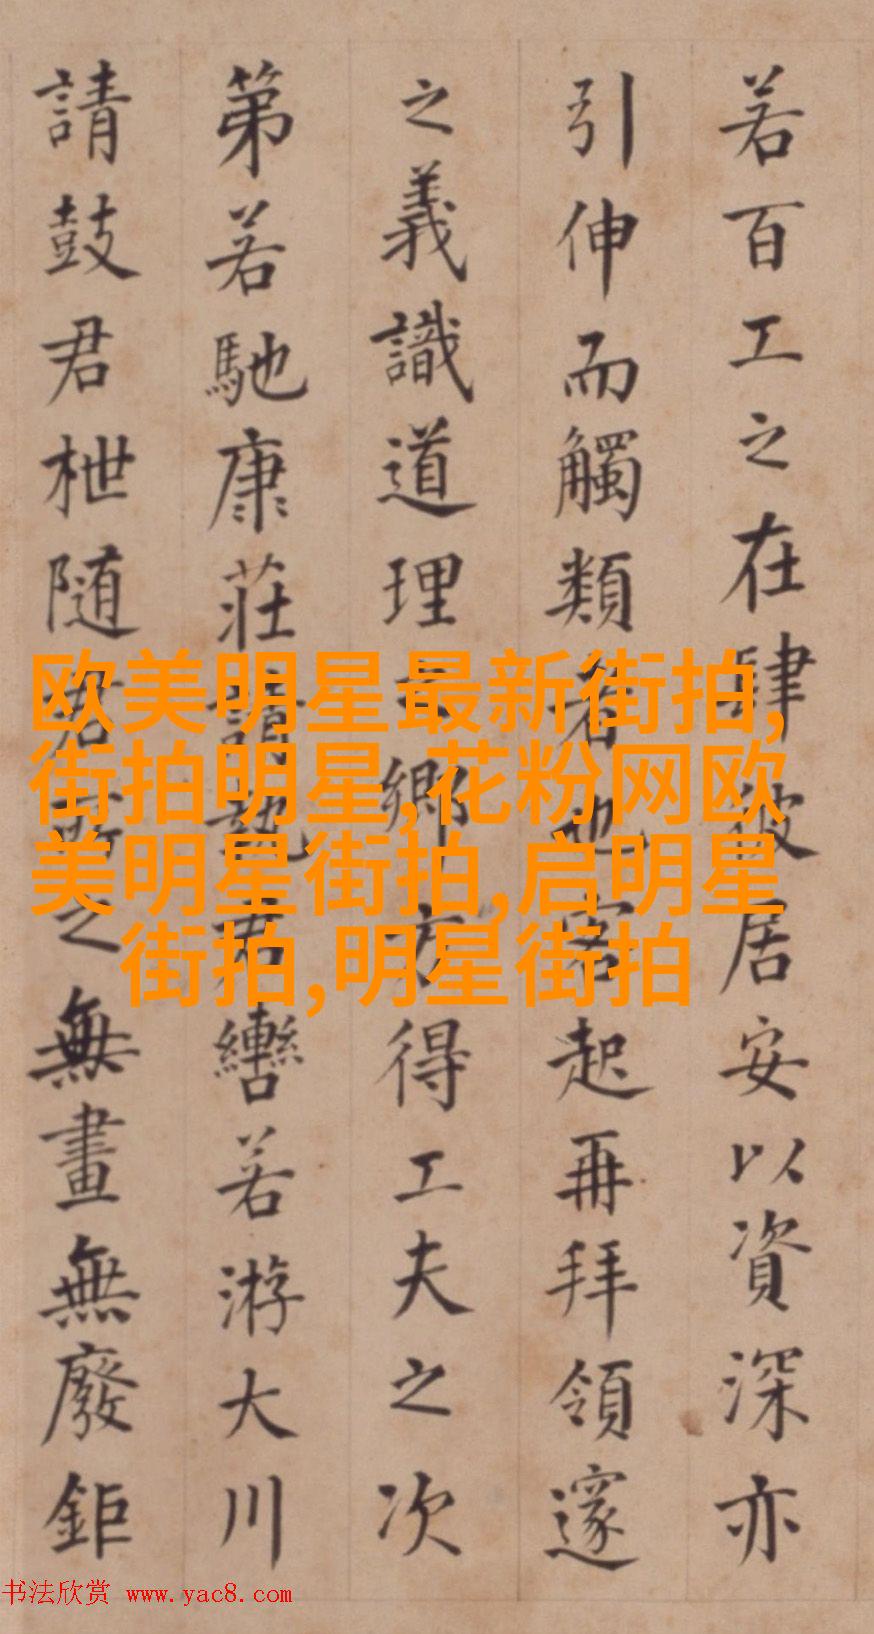 若百工之在肆彼居安以資深亦
引伸而觸類者也客起再拜領邃
之義識道理之鄉方得工夫之次
第若馳康莊請執君轡若游大川
請鼓君枻随君所之無畫無廢鉅
欧美明星最新街拍,
街拍明星,花粉网欧
美明星街拍,启明星
街拍,明星街拍
书法欣赏 www.yac8.com